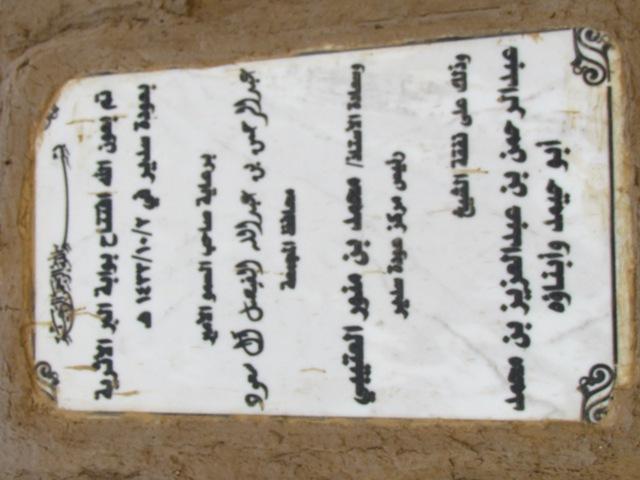 بسم الله الرحمن الرحيم
تم بعون الله افتتاح بوابة البر الأثرية
بعودة سدير في ١٤٣٣/١٠/٢ هـ
برعاية صاحب السمو الأمير
عبدالرحمن بن عبدالله الفيصل آل سعود
محافظ المجمعة
وسعادة الأستاذ/ محمد بن منور العتيبي
رئيس مركز عودة سدير
وذلك على نفقة الشيخ
عبدالرحمن بن عبدالعزيز بن محمد
أبو حيمد وأبناؤه